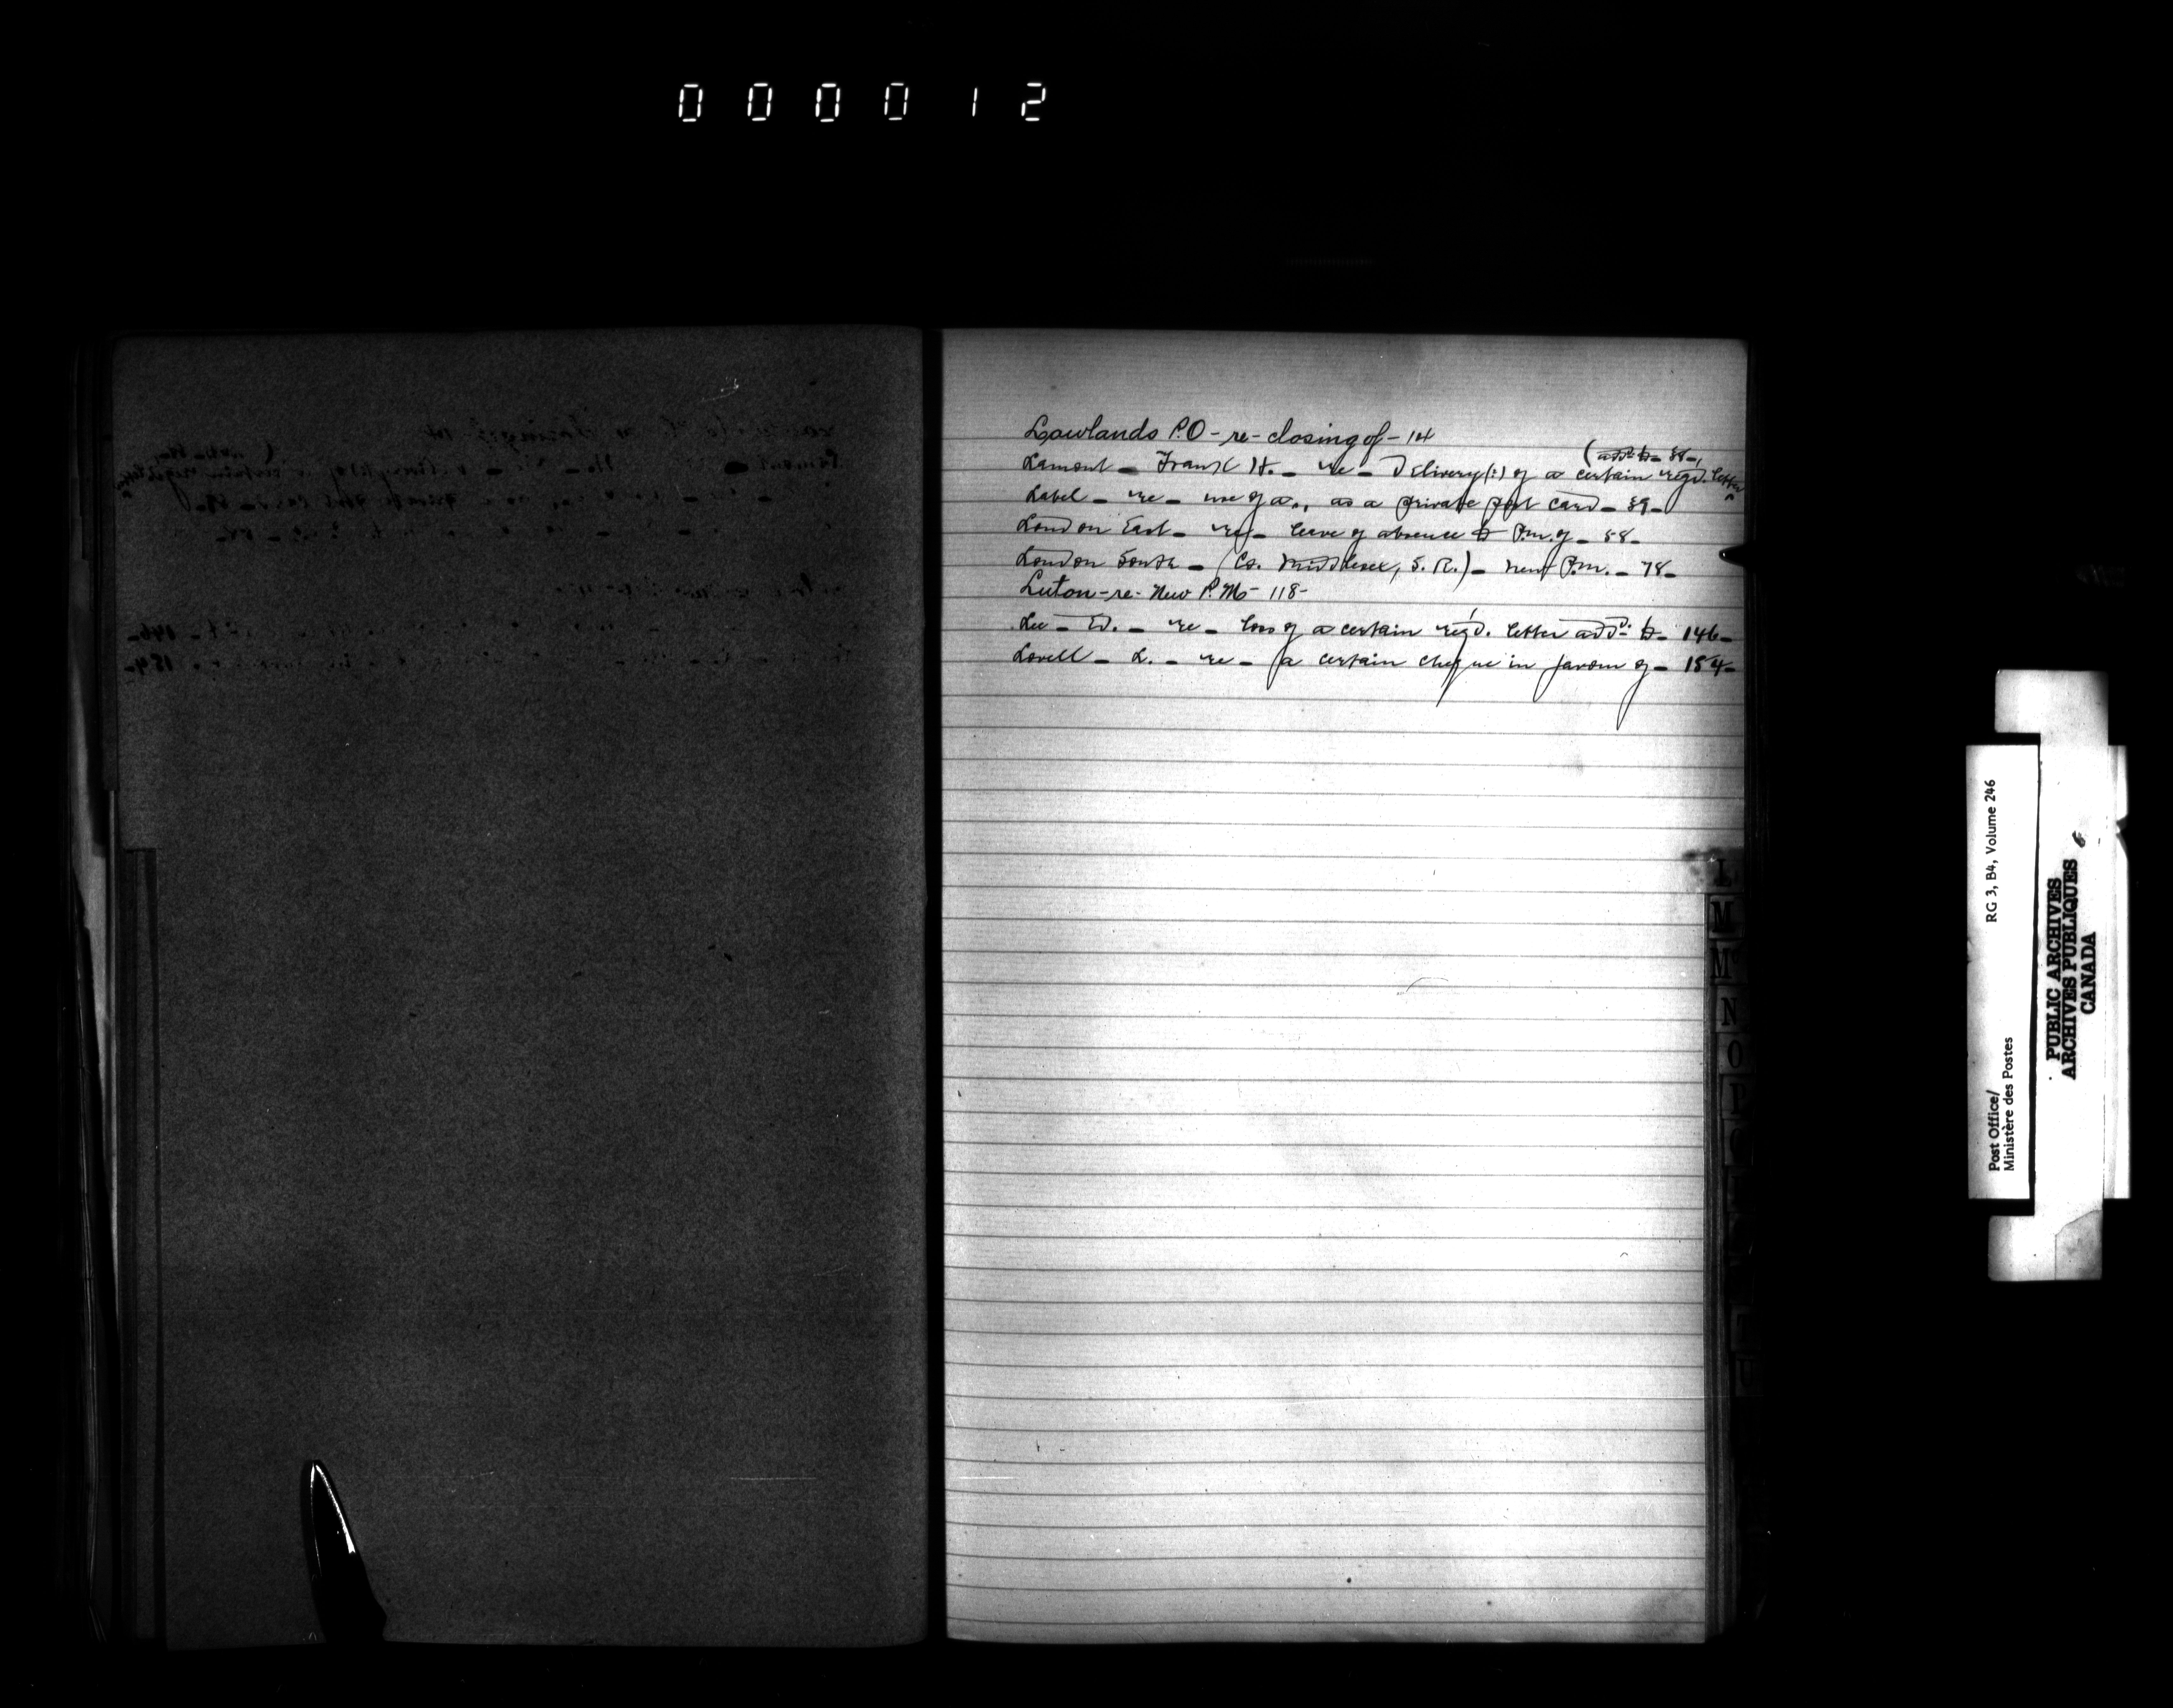 000012
Lowlands P.O - re - closing of - 14
(add^d. to - 38 -,
Lamont - Frank H. - re - Delivery (:) of a certain regd. letter
Label - re - use of a,, as a private post card - 39 -
London East - re - leave of absence to P.m. of - 58 -
London South - (Co. Middlesex, S. R.) - new P.m. - 78 -
Luton - re - New P. M. - 118 -
Lee - Ed. - re - loss of a certain reg'd. letter add^d. to - 146 -
Lovell - L. - re - a certain cheque in favour of - 154 -
L
M
Mc
N
O
P
Post Office/
Ministère des Postes
RG 3, B4, Volume 246
PUBLIC ARCHIVES
ARCHIVES PUBLIQUES
CANADA